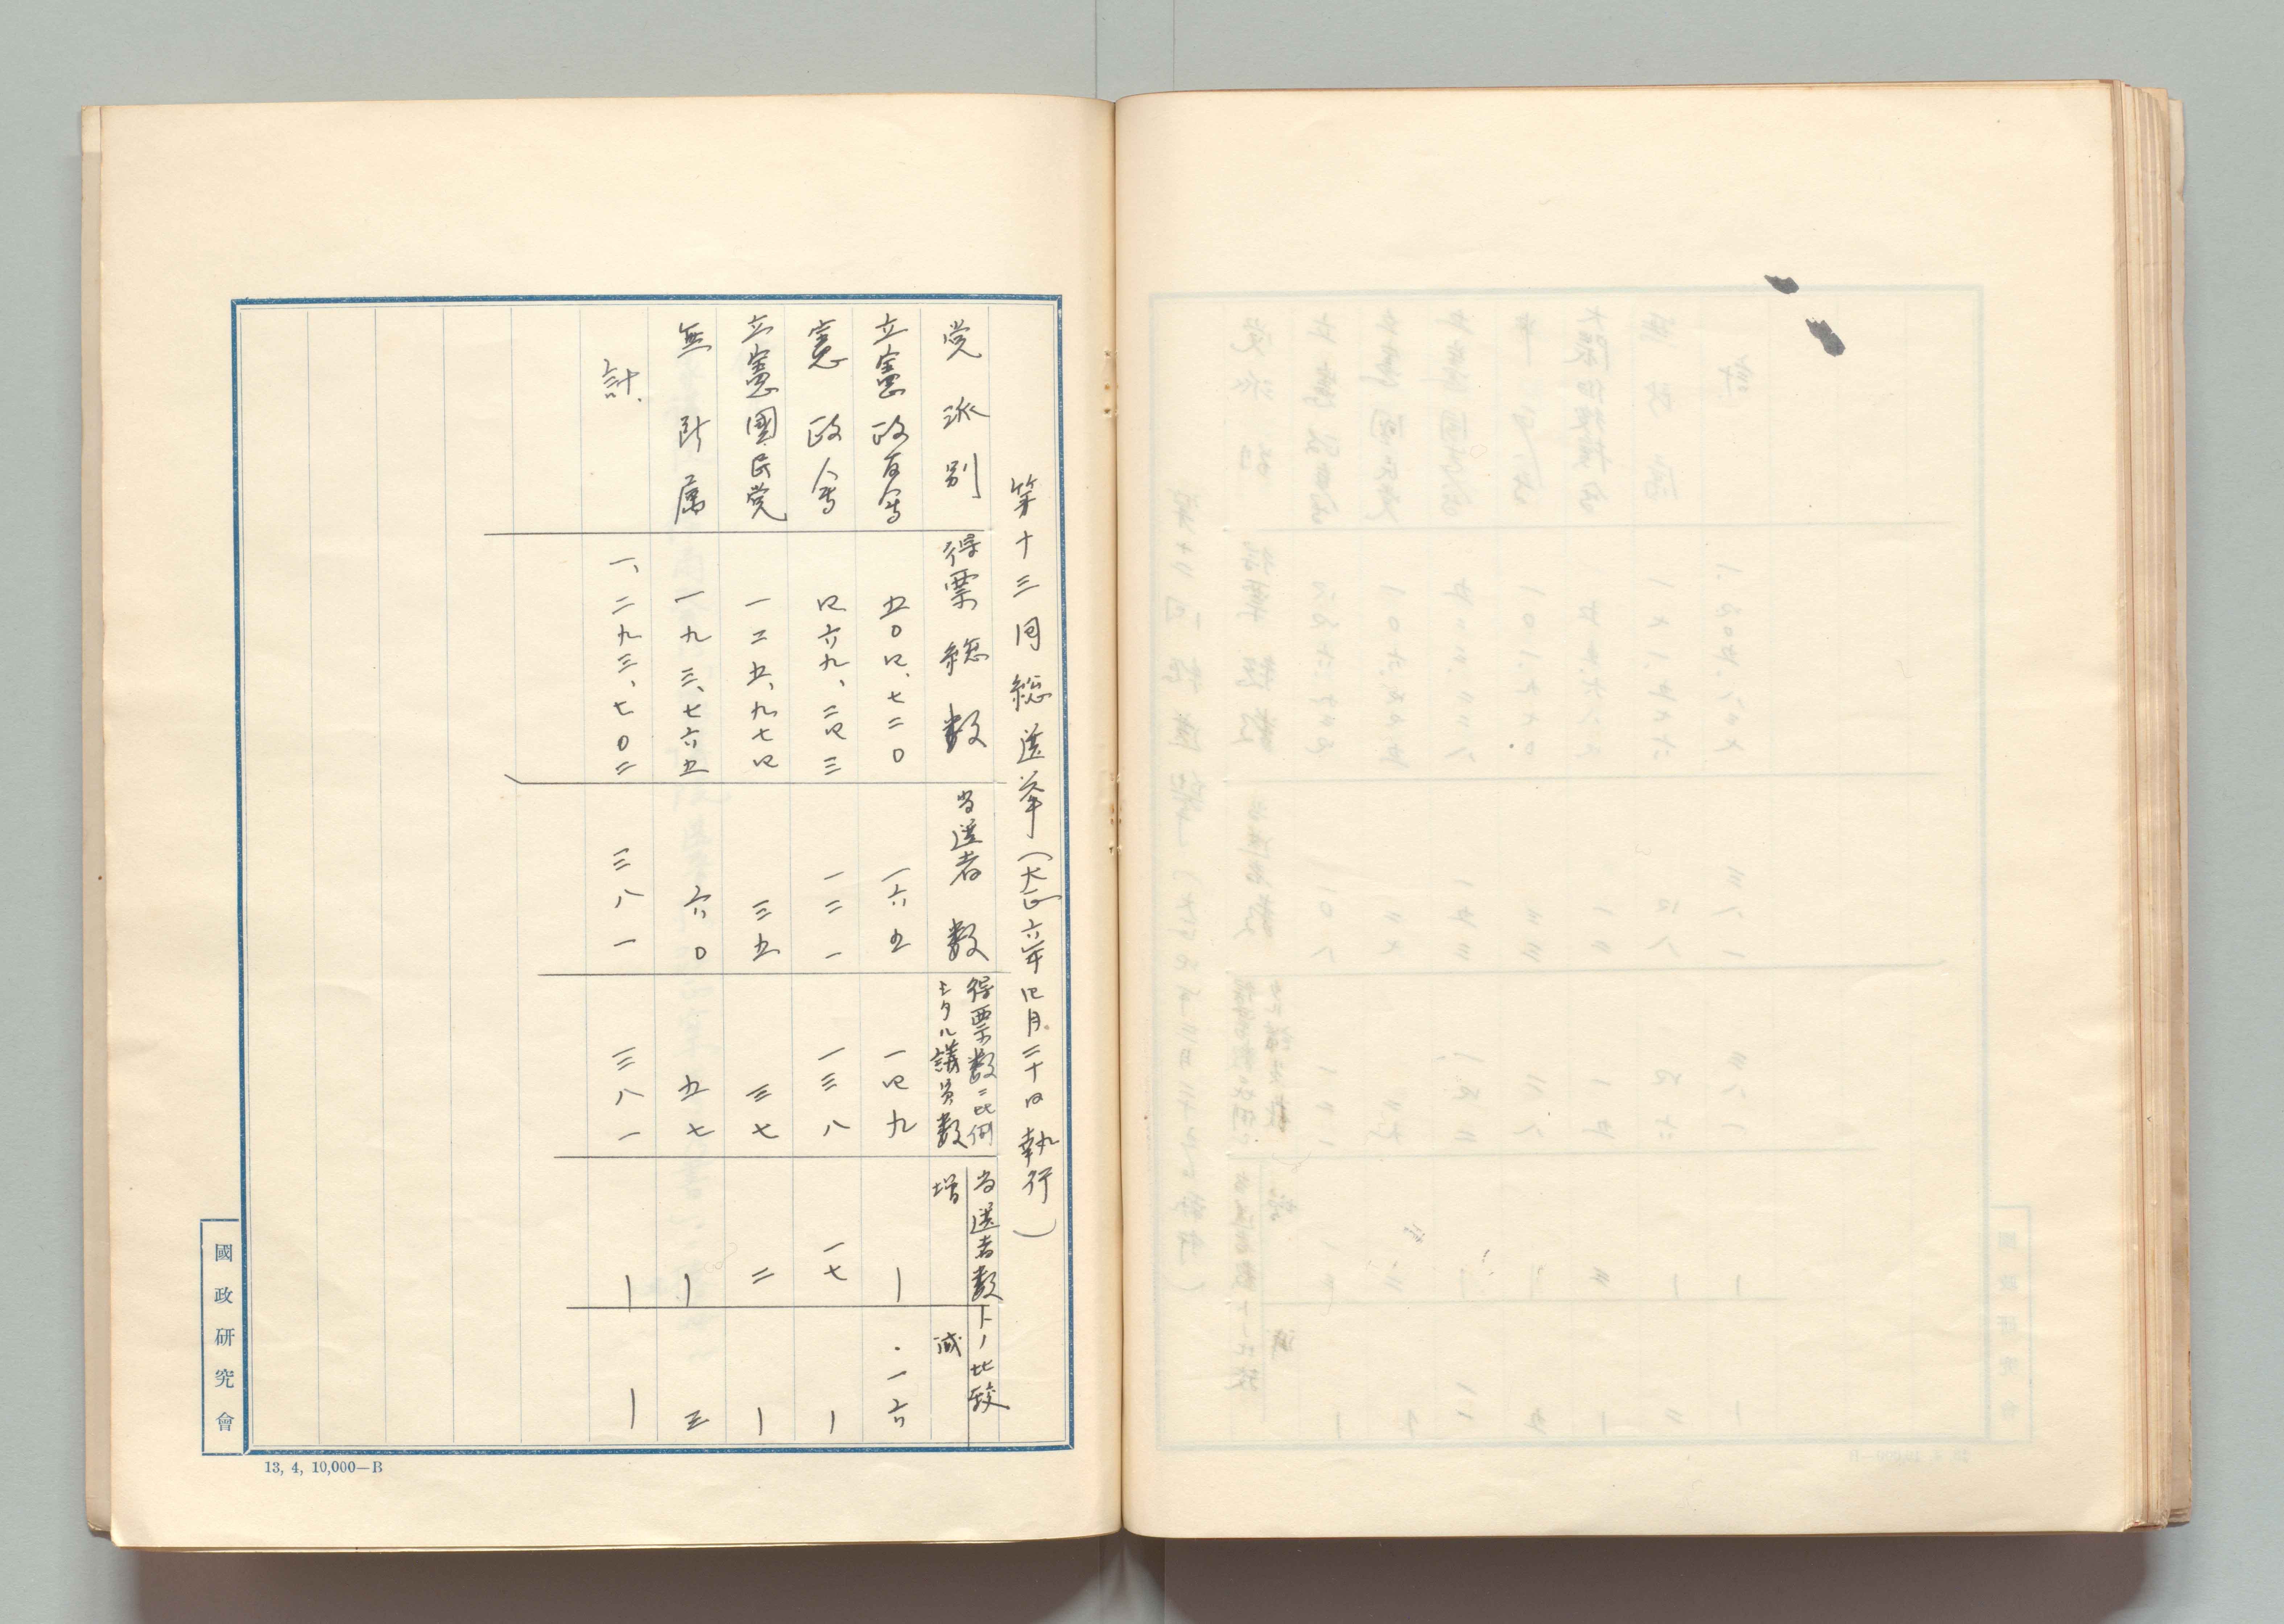 第十三回総選挙(大正六年四月二十日執行)
党派別 得票総数 当選者数 得票数ニ比例シタル議員数 当選者数トノ比較 増 減
立憲政友会 五〇四、七二〇 一六五 一四九 | 一六
憲政会 四六九、二四三 一二一 一三八 一七 |
立憲國民党 一二五、九七四 三五 三七 二 |
無所属 一九三、七六五 六〇 五七 | 三
計 一、二九三、七〇二 三八一 三八一 | |
國政研究會
13, 4, 10,000—B